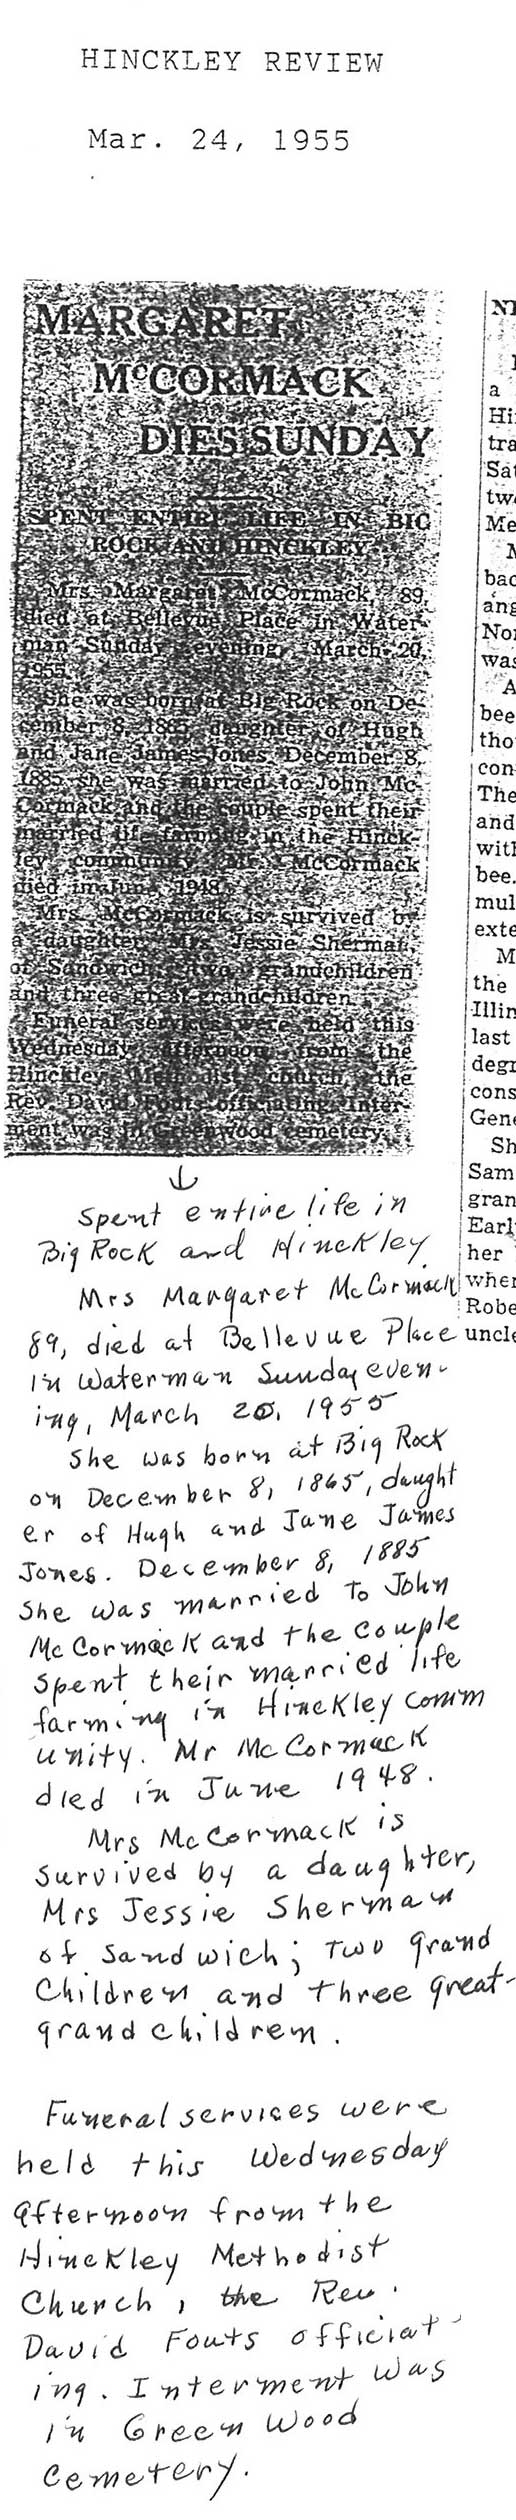 HINCKLEY REVIEW
Mar. 24, 1955
MARGARET
McCORMACK
DIES SUNDAY
SPENT ENTIRE LIFE IN BIG
ROCK AND HINCKLEY
Mrs. Margaret McCormack, 89,
died at Bellevue Place in Water-
man Sunday evening, March 20,
1955.
She was born at Big Rock on De-
cember 8, 1865, daughter of Hugh
and Jane James Jones. December 8,
1885 she was married to John Mc-
Cormack and the couple spent their
married life farming in the Hinck-
ley community. Mr. McCormack
died in June, 1948.
Mrs. McCormack is survived by
a daughter, Mrs. Jessie Sherman,
of Sandwich; two grandchildren
and three great-grandchildren.
Funeral services were held this
Wednesday afternoon from the
Hinckley Methodist church, the
Rev. David Fouts officiating. Inter-
ment was in Greenwood cemetery.
Spent entire life in
Big Rock and Hinckley
Mrs Margaret McCormack
89, died at Bellevue Place
in Waterman Sunday even-
ing, March 20, 1955
She was born at Big Rock
on December 8, 1865, daught
er of Hugh and Jane James
Jones. December 8, 1885
She was married to John
McCormack and the couple
spent their married life
farming in Hinckley comm
unity. Mr McCormack
died in June 1948.
Mrs McCormack is
survived by a daughter,
Mrs Jessie Sherman
of Sandwich; two grand
Children and three great-
grandchildren.
Funeral services were
held this Wednesday
afternoon from the
Hinckley Methodist
Church, the Rev.
David Fouts officiat-
ing. Interment was
in Green Wood
Cemetery.
a
Hi
tra
Sat
two
Me
M
bac
ang
Nor
was
A
bee
tho
con
The
and
with
bee.
mul
exte
M
the
Illin
last
degr
cons
Gene
Sh
Sam
gran
Earl
her
when
Robe
uncle